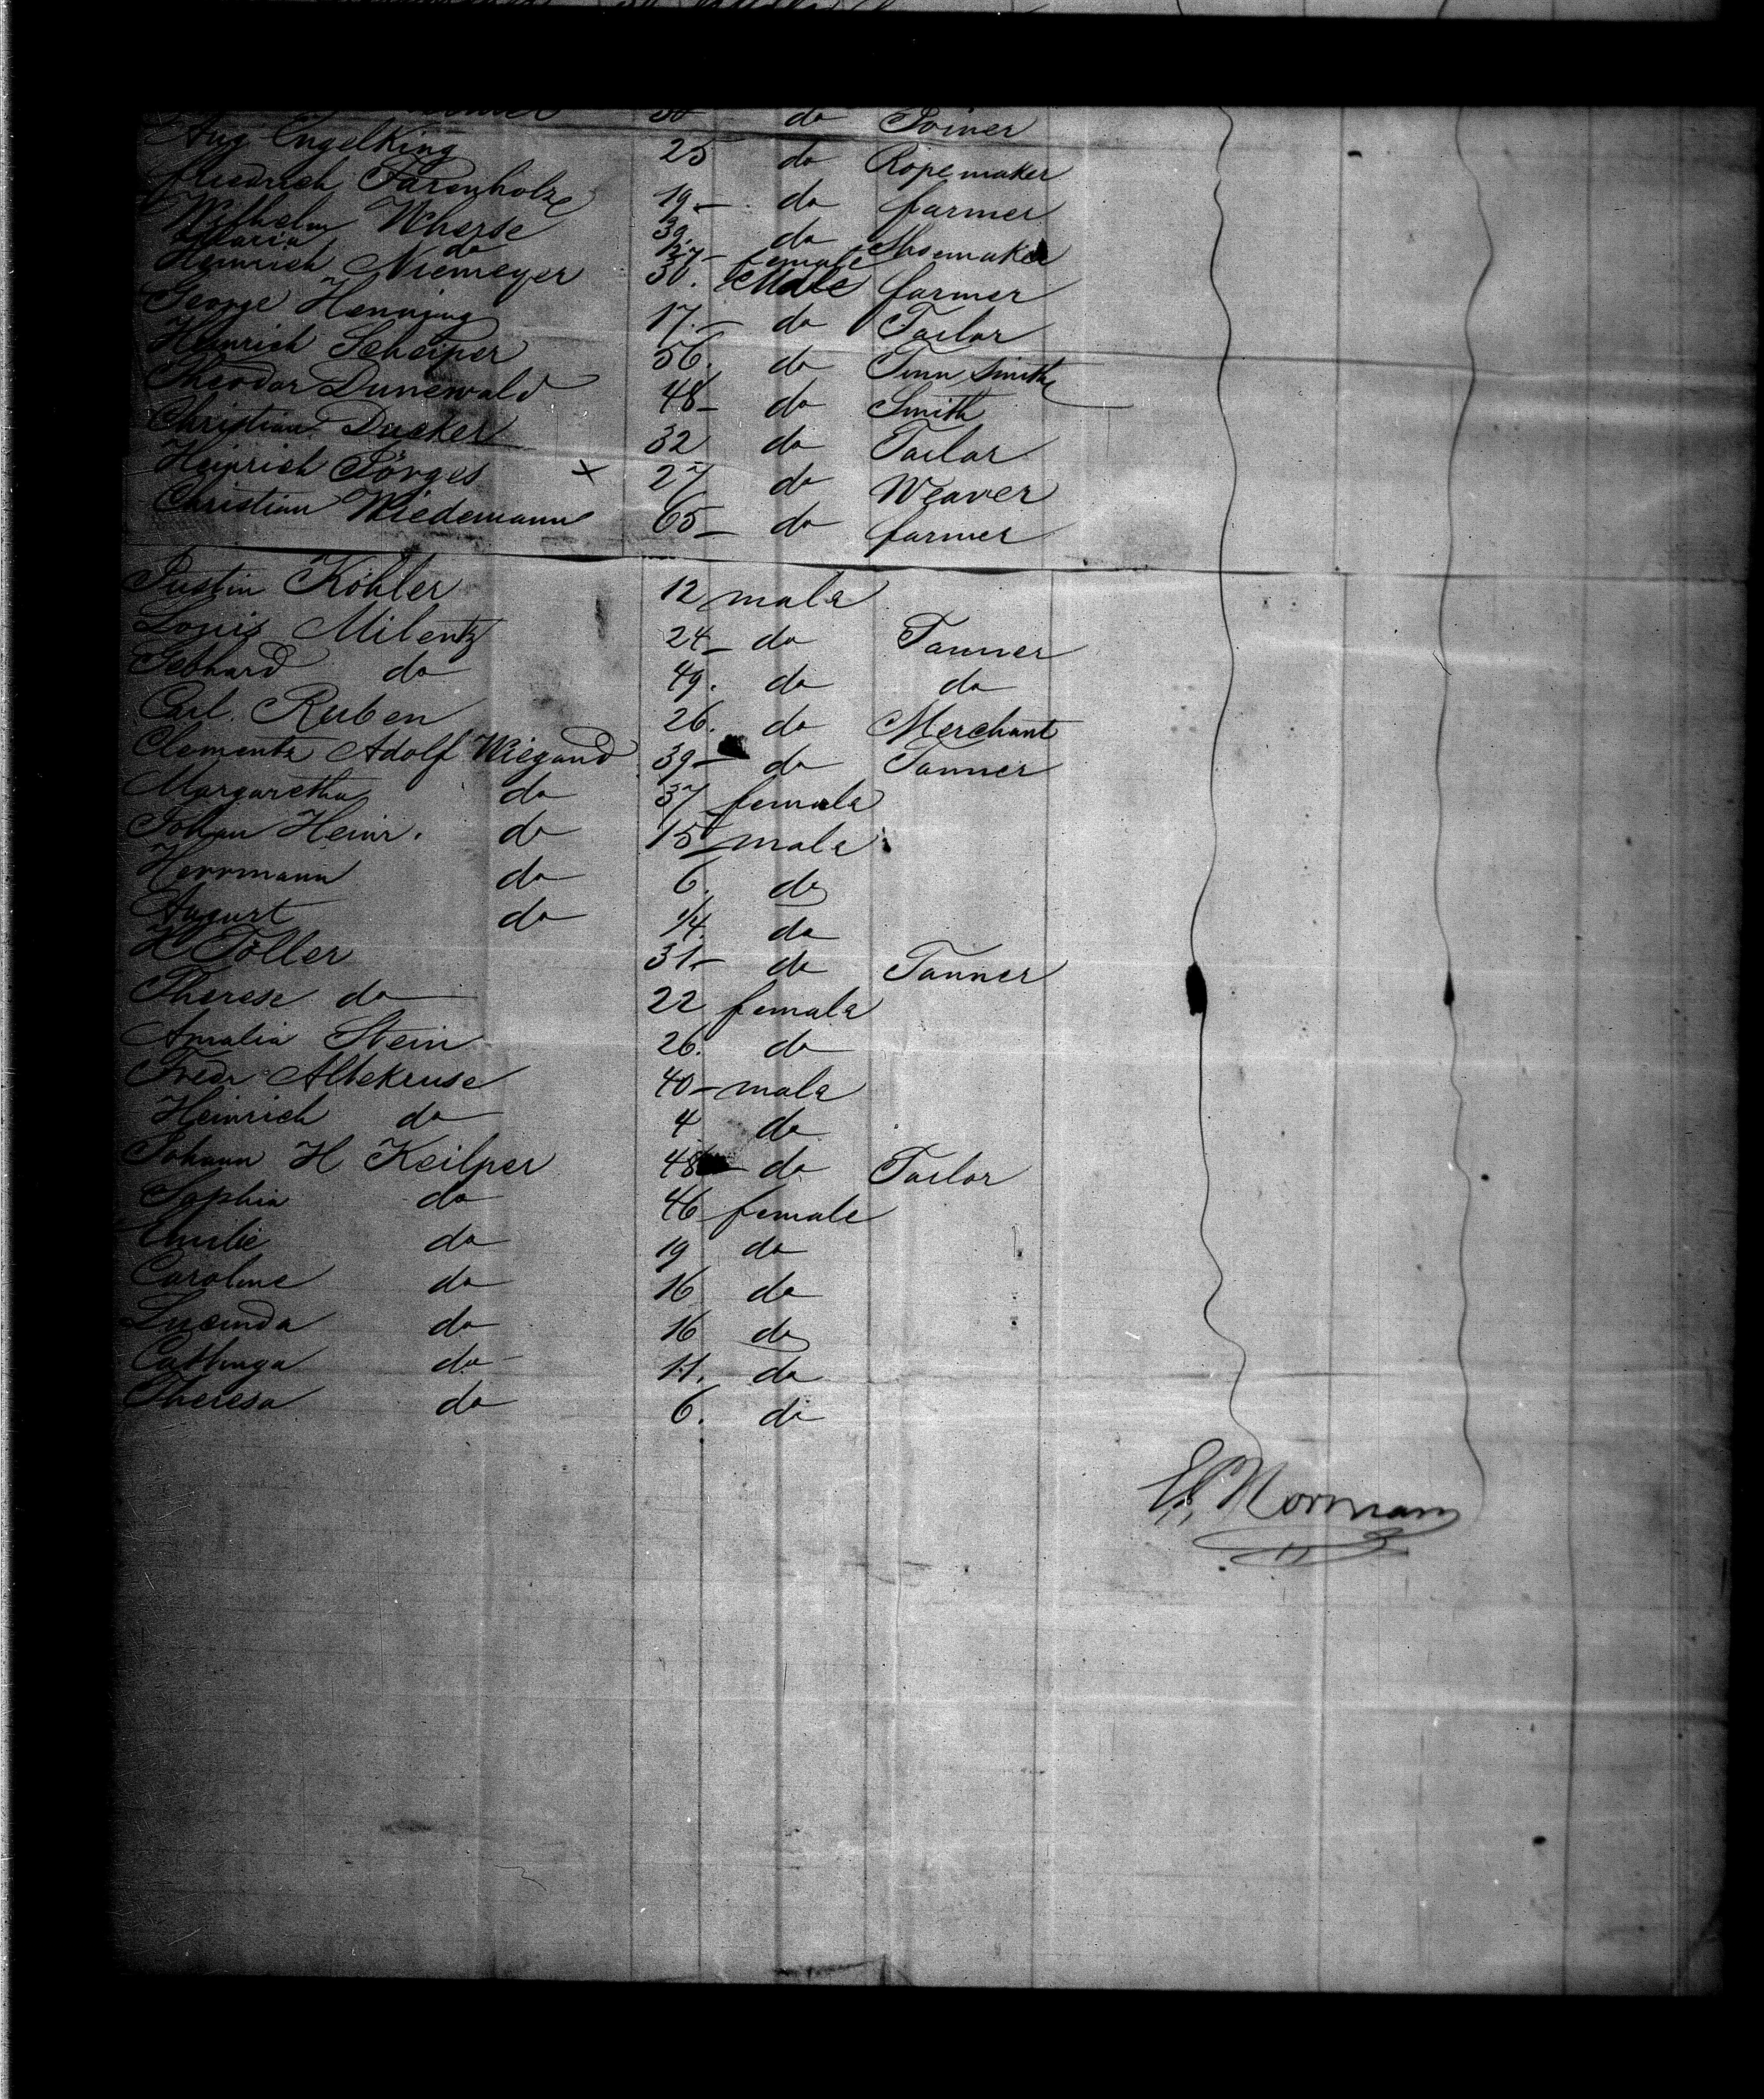 30 do Joiner
Aug Engelking 25 do Rope maker
Friedrich Farenholze 19 — do farmer
Wilhelm Wherse 39. do Shoemaker
Maria do female
Heinrich Niemeyer 30. Male farmer
George Henning 17. — do Tailor
Heinrich Scheiper 56. do Tinn Smith
Theodor Dunewald 48 — do Smith
Christian Ducker 32 do Tailor
Heinrich Jörges x 27 do Weaver
Christian Wiedemann 65 — do farmer
Justin Köhler 12 male
Louis Milentz 24 — do Tanner
Gebhard do 49. do do
Carl. Ruben 26. do Merchant
Clementz Adolf Wiegand 39 — do Tanner
Margaretha do 37 female
Johan Heinr. do 15 male
Herrmann do 6. do
August do 1/4. do
H Töller 31 — do Tanner
Therese do 22 female
Amalia Stein 26. do
Fredr Altekruse 40 — male
Heinrich do 4 do
Johann H Keilper 48 — do Tailor
Sophia do 46 female
Emilie do 19 do
Caroline do 16 do
Lucinda do 16 do
do 11. do
Theresa do 6. do
Norman